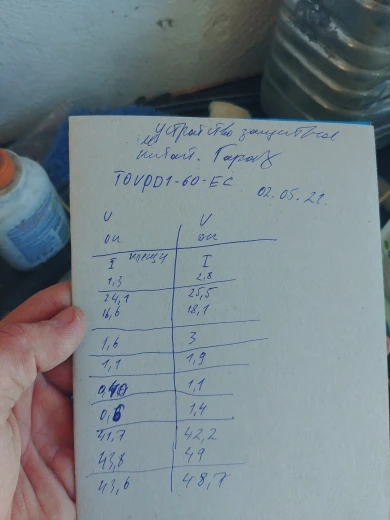 устройство защитное
китай. Гараж
TOVPD1-60-EC
02.05.21.
U U
он он
I I
1,3 2,8
24,1 25,5
16,6 18,1
1,6 3
1,1 1,9
1,1
0,6 1,4
41,7 42,2
43,8 49
43,6 48,7